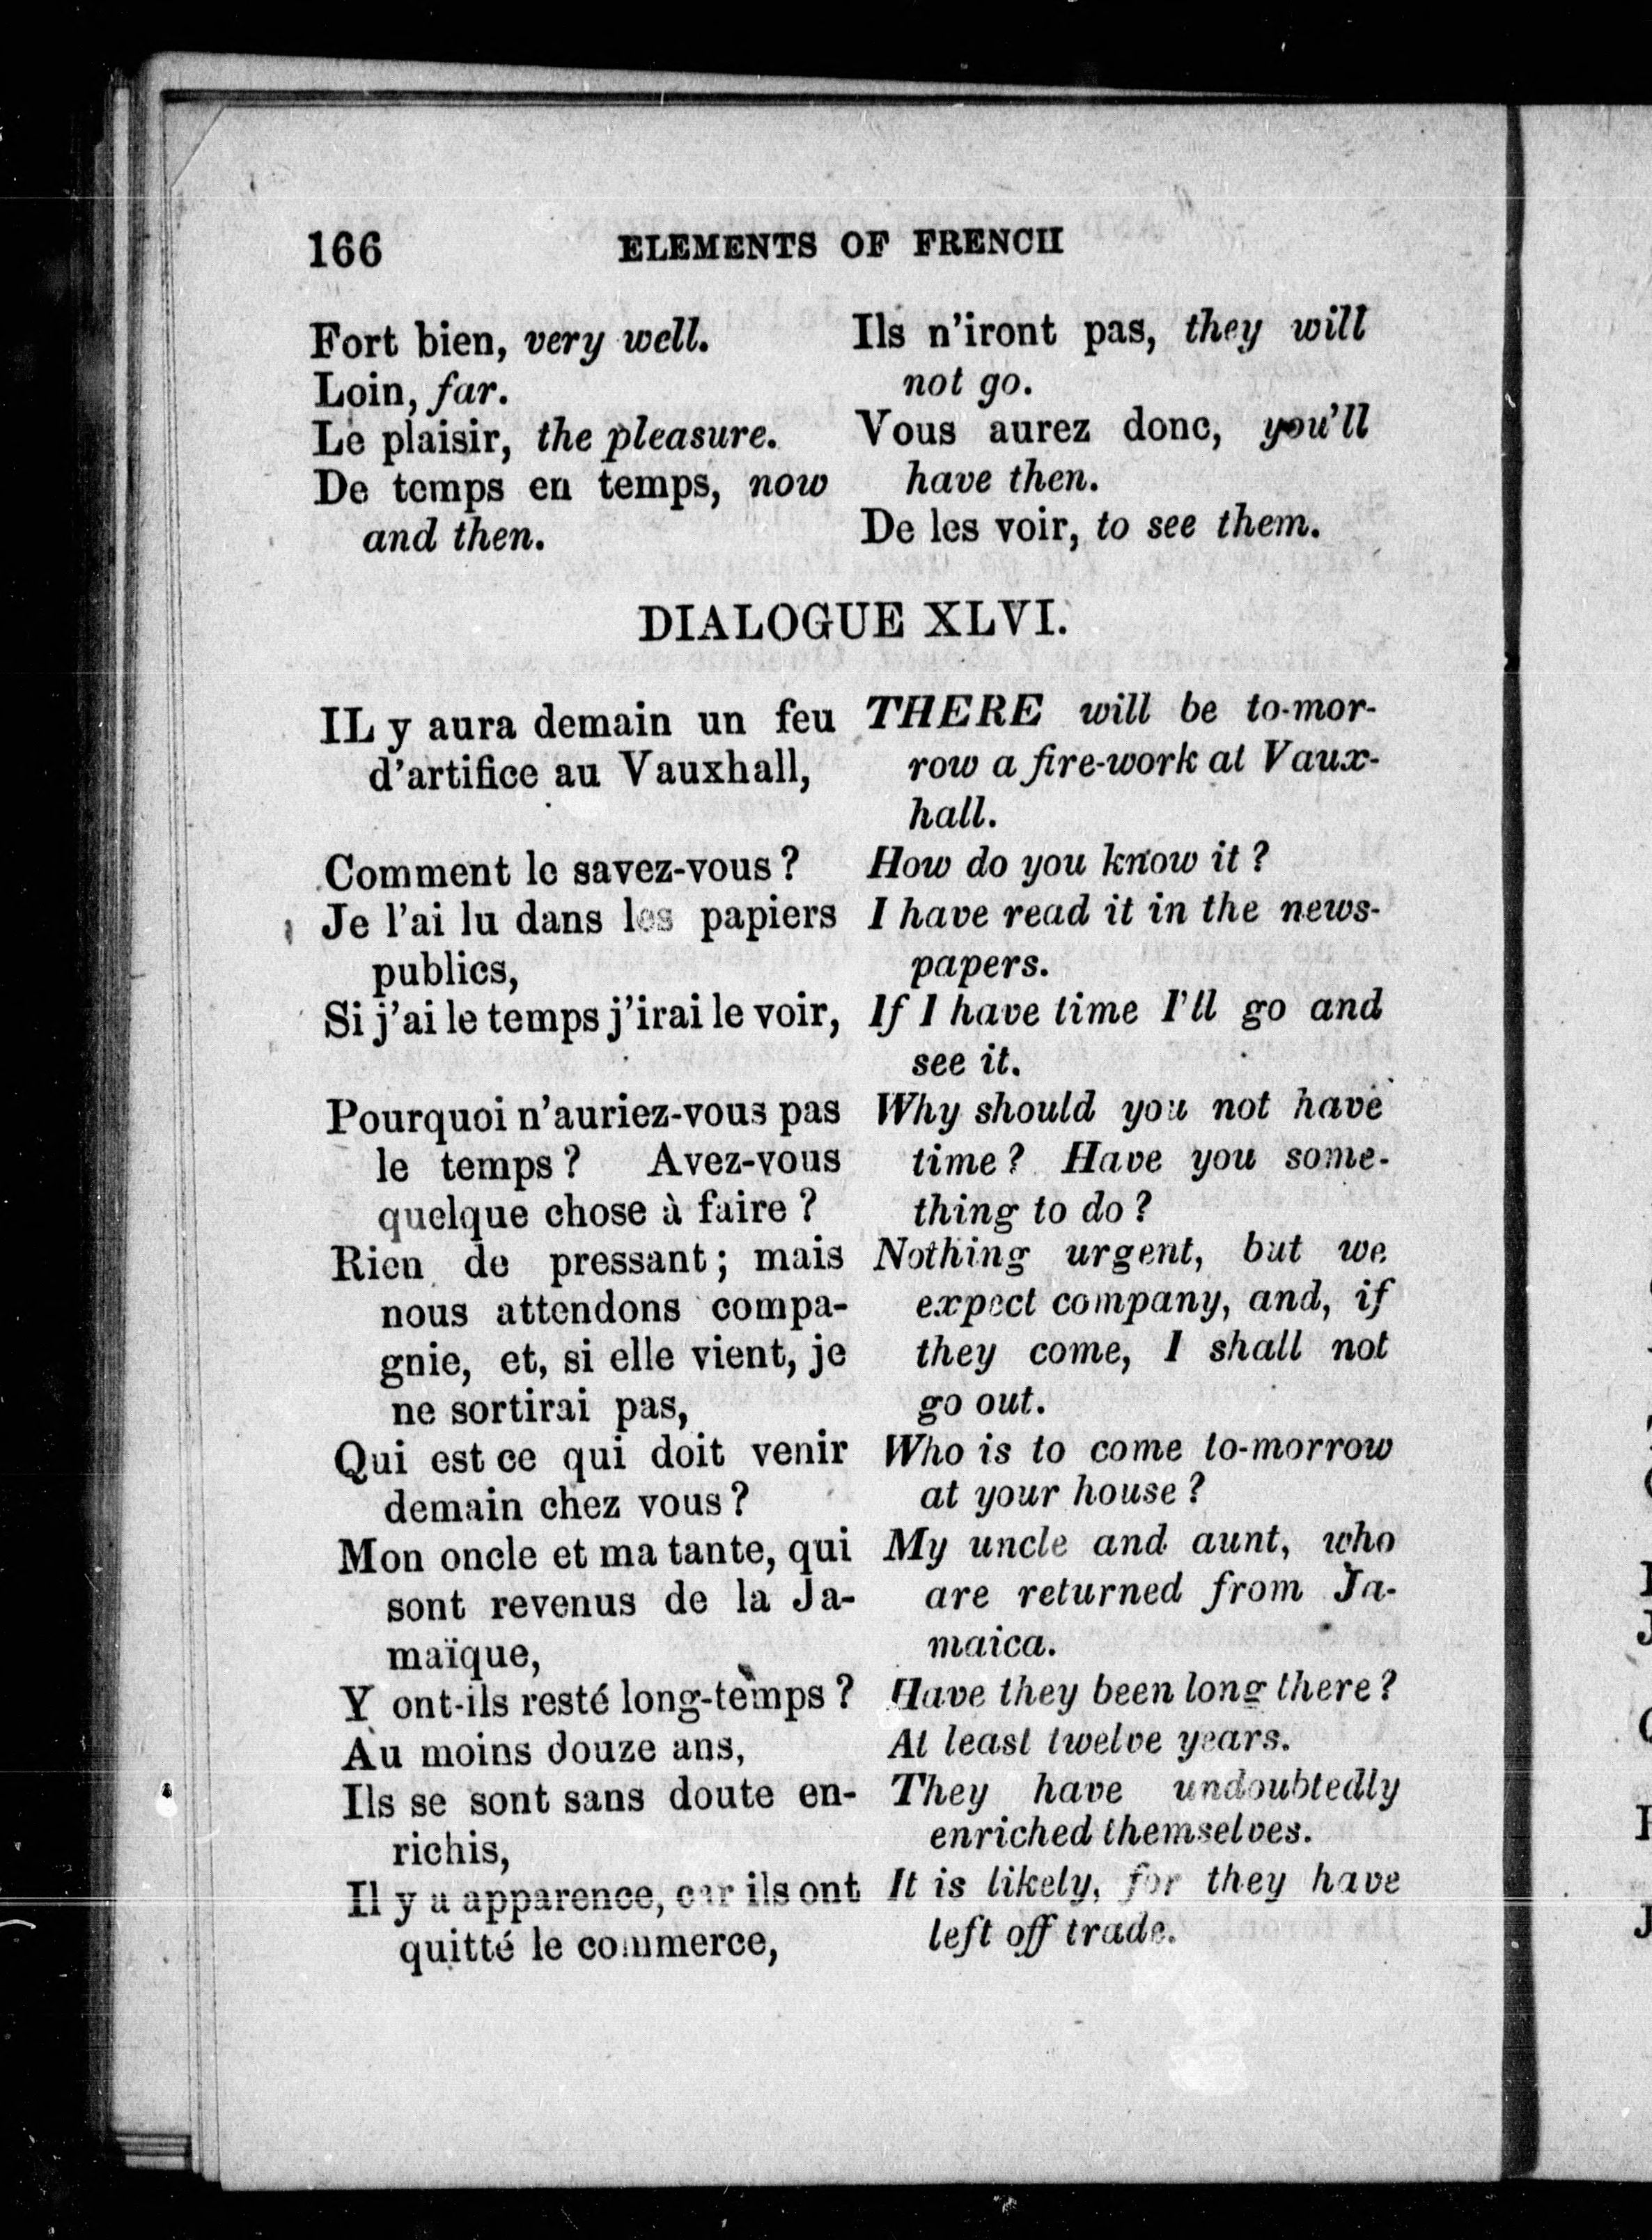 166 ELEMENTS OF FRENCH
Fort bien, very well.
Loin, far.
Le plaisir, the pleasure.
De temps en temps, now
and then.
Ils n'iront pas, they will
not go.
Vous aurez donc, you'll
have then.
De les voir, to see them.
DIALOGUE XLVI.
IL y aura demain un feu
d'artifice au Vauxhall,
Comment le savez-vous ?
Je l'ai lu dans les papiers
publics,
Si j'ai le temps j'irai le voir,
Pourquoi n'auriez-vous pas
le temps ? Avez-vous
quelque chose à faire ?
Rien de pressant ; mais
nous attendons compa-
gnie, et, si elle vient, je
ne sortirai pas,
Qui est ce qui doit venir
demain chez vous ?
Mon oncle et ma tante, qui
sont revenus de la Ja-
maïque,
Y ont-ils resté long-temps ?
Au moins douze ans,
Ils se sont sans doute en-
richis,
Il y a apparence, car ils ont
quitté le commerce,
THERE will be to-mor-
row a fire-work at Vaux-
hall.
How do you know it ?
I have read it in the news-
papers.
If I have time I'll go and
see it.
Why should you not have
time ? Have you some-
thing to do ?
Nothing urgent, but we
expect company, and, if
they come, I shall not
go out.
Who is to come to-morrow
at your house ?
My uncle and aunt, who
are returned from Ja-
maica.
Have they been long there ?
At least twelve years.
They have undoubtedly
enriched themselves.
It is likely, for they have
left off trade.